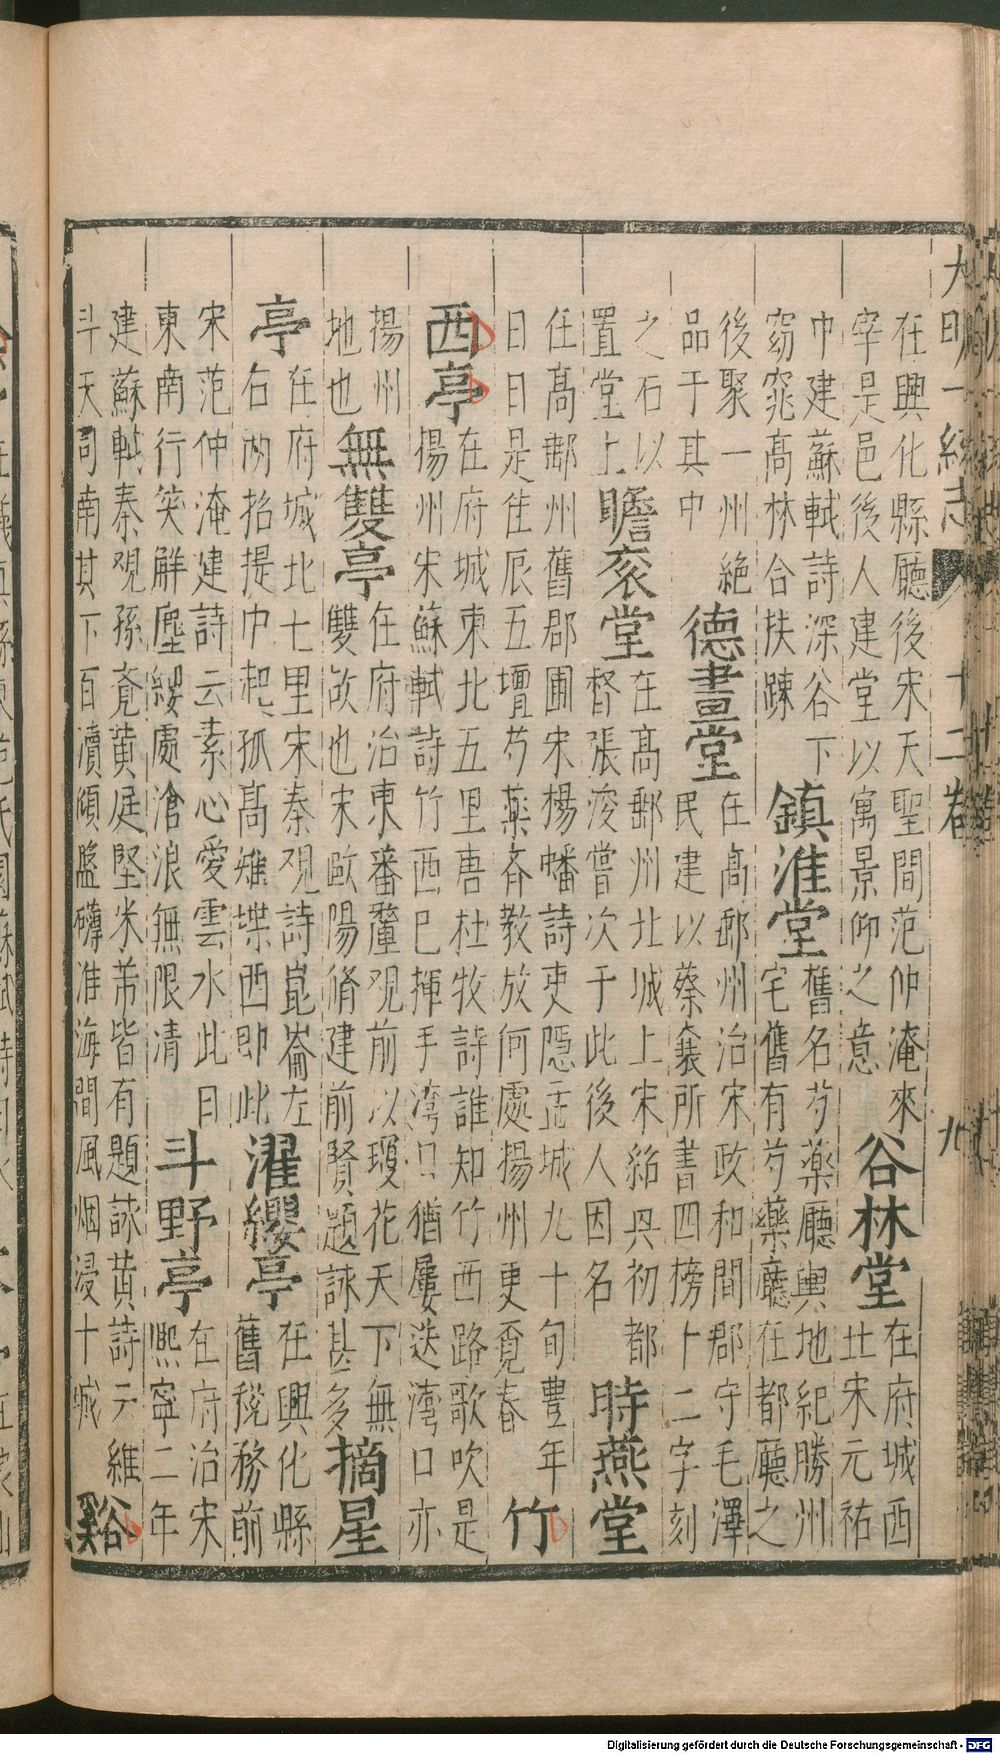 大明一統志 十二卷 九
在興化縣廳後宋天聖間范仲淹來
宰是邑後人建堂以寓景仰之意
谷林堂
在府城西
北宋元祐
中建蘇軾詩深谷下
窈窕高林合扶疎
鎮淮堂
舊名芍藥廳輿地紀勝州
宅舊有芍藥廳在都廳之
後聚一州絶
品于其中
德晝堂
在高郵州治宋政和間郡守毛澤
民建以蔡襄所書四榜十二字刻
之石以
置堂上
瞻衮堂
在高郵州北城上宋紹興初都
督張浚嘗次于此後人因名
時燕堂
在高郵州舊郡圃宋楊蟠詩吏隱孟城九十旬豐年
日日是佳辰五壇芍藥齊教放何處揚州更覓春
竹
西亭
在府城東北五里唐杜牧詩誰知竹西路歌吹是
揚州宋蘇軾詩竹西已揮手灣口猶屢送灣口亦
揚州
地也
無雙亭
在府治東蕃釐觀前以瓊花天下無
雙故也宋歐陽脩建前賢題詠甚多
摘星
亭
在府城北七里宋秦觀詩崑崙左
右兩招提中起孤高雉堞西即此
濯纓亭
在興化縣
舊稅務前
宋范仲淹建詩云素心愛雲水此日
東南行笑解塵纓處滄浪無限清
斗野亭
在府治宋
熙寧二年
建蘇軾秦觀孫覺黄庭堅米芾皆有題詠黄詩云維
斗天司南其下百瀆傾盤礴淮海間風烟浸十城
谿
Digitalisierung gefördert durch die Deutsche Forschungsgemeinschaft - DFG